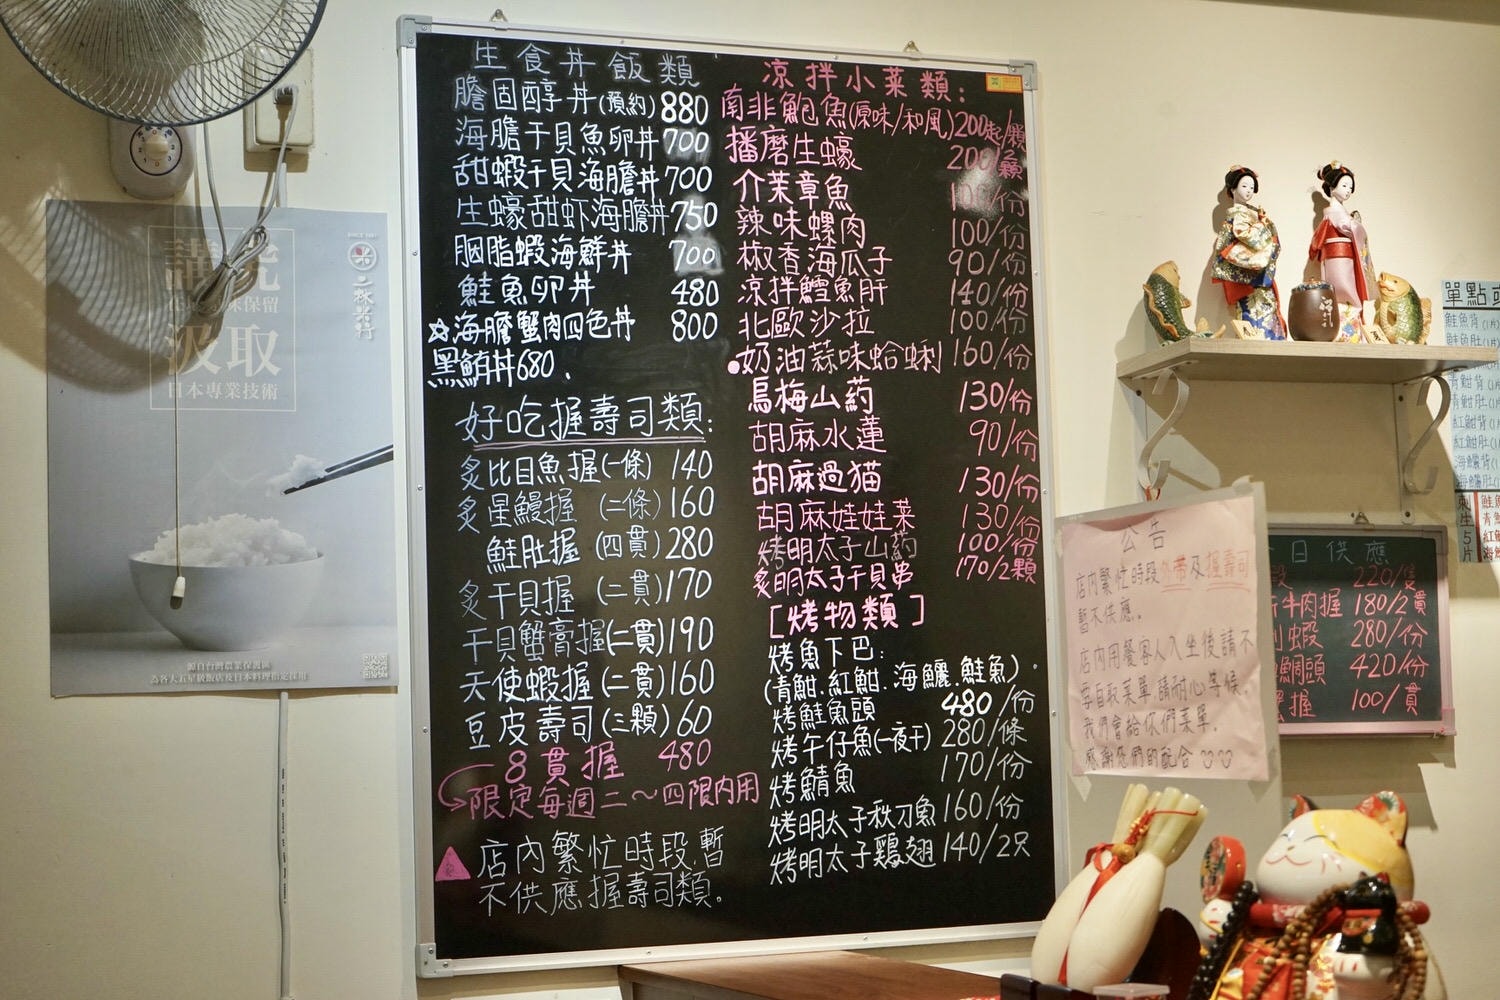 生食丼飯類
膽固醇丼(預約)880
海膽干貝魚卵丼700
甜蝦干貝海膽丼700
生蠔甜虾海膽丼750
胭脂蝦海鮮丼700
鮭魚卵丼480
☆海膽蟹肉四色丼800
黑鮪丼680.
好吃握壽司類:
炙比目魚握(一條)140
炙星鰻握(二條)160
鮭肚握(四貫)280
炙干貝握(二貫)170
干貝蟹膏握(二貫)190
天使蝦握(二貫)160
豆皮壽司(三顆)60
8貫握 480
限定每週二~四限內用
店內繁忙時段暫
不供應握壽司類。
涼拌小菜類:
南非鮑魚(原味/和風)200起/顆
播磨生蠔200/2顆
介茉章魚100/份
辣味螺肉100/份
椒香海瓜子90/份
涼拌鱈魚肝140/份
北歐沙拉100/份
奶油蒜味蛤蜊160/份
烏梅山葯130/份
胡麻水蓮90/份
胡麻過猫130/份
胡麻娃娃菜130/份
烤明太子山葯100/份
炙明太子干貝串170/2顆
[烤物類]
烤魚下巴:
(青魽.紅魽.海鱺.鮭魚)
烤鮭魚頭480/份
烤午仔魚(一夜干)280/條
烤鯖魚170/份
烤明太子秋刀魚160/份
烤明太子鷄翅140/2只
汲取
日本專業技術
三秋米行
源自台灣農業保護區
為各大五星級飯店及日本料理指定採用
公告
店內繁忙時段外帶及握壽司
暫不供應。
店內用餐客人入坐後請不
要自取菜單,請耐心等候,
我們會給你們菜單。
感謝您們的配合♡♡
日供應
220/隻
牛肉握180/2貫
蝦280/份
鯛頭420/份
握100/貫
單點
鮭魚背
青魽背
青魽肚
紅魽背
紅魽肚
海鱺背
刺
生
5
片